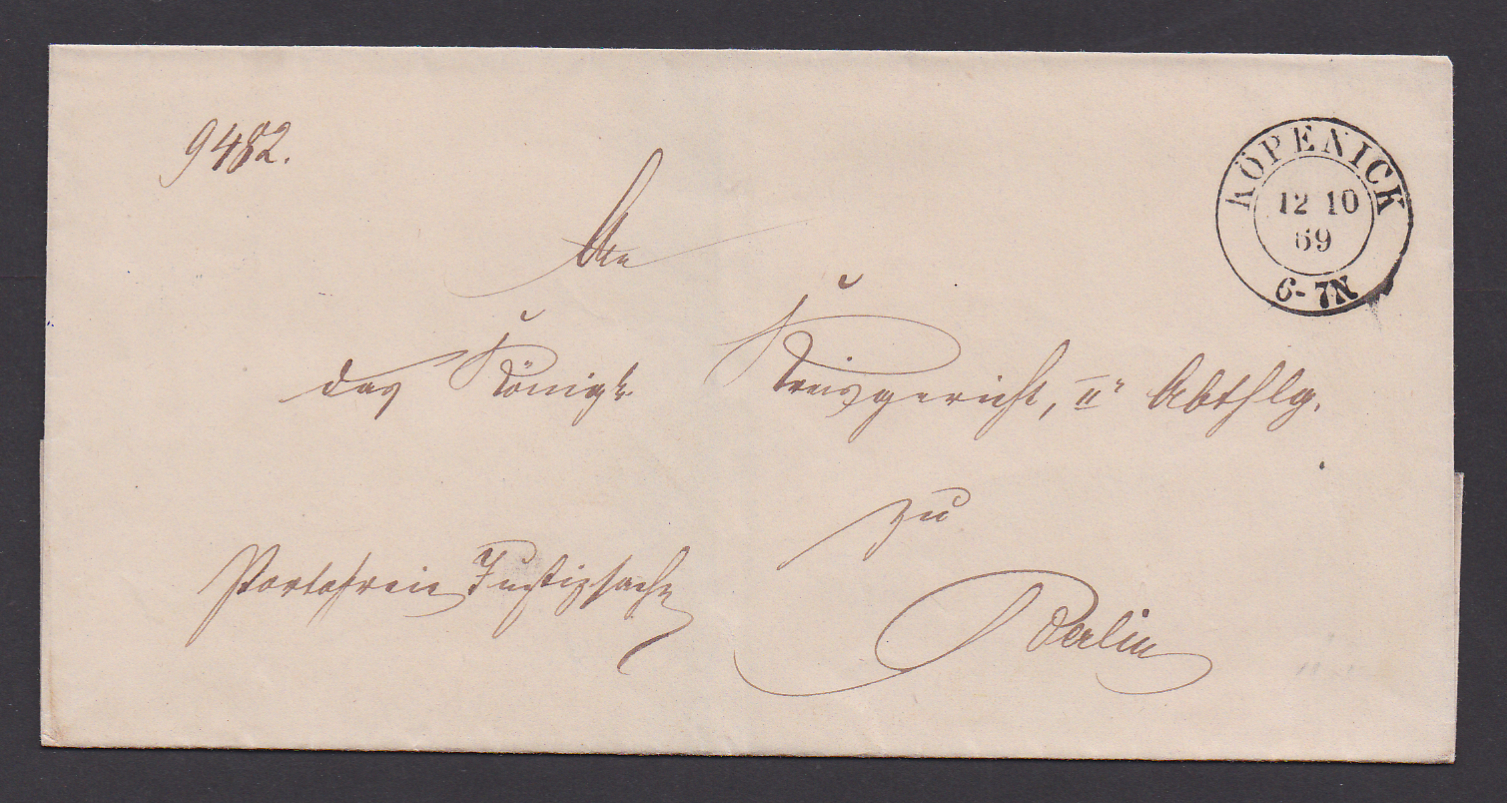 9482.
KÖPENICK
12 10
69
6-7N
An
das Königl.
Kreisgericht, II" Abthlg.
zu
Berlin
Portofreie Justizsache